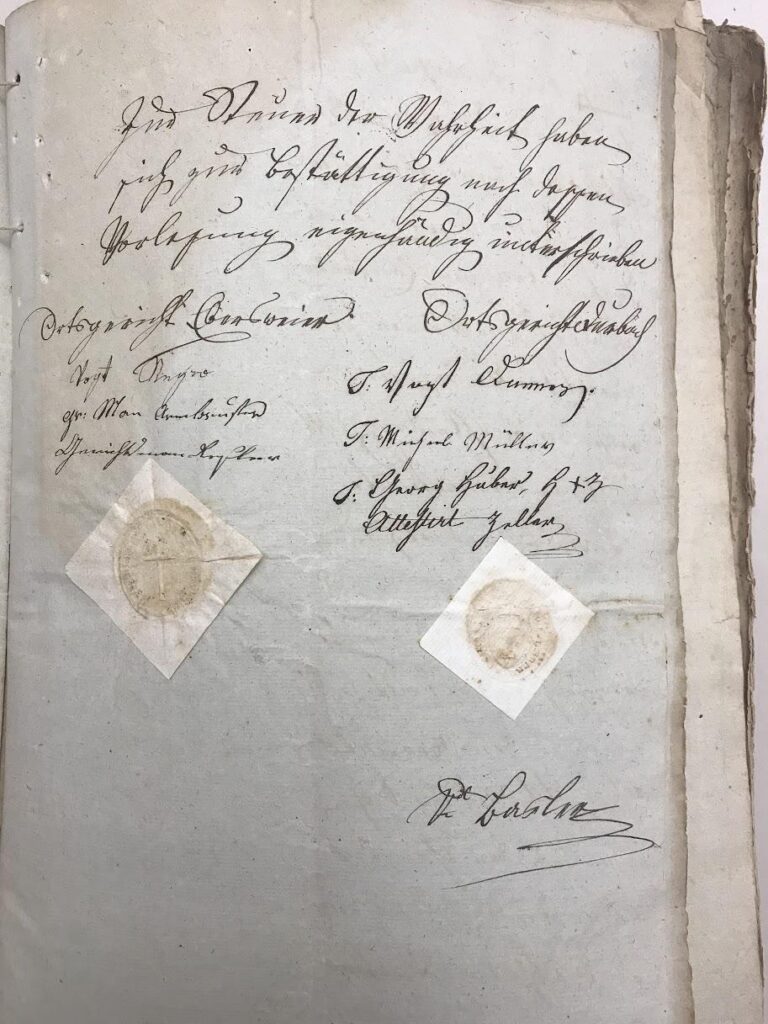 Zur Steuer der Wahrheit haben
sich zur Bestättigung nach dessen
Vorlesung eigenhändig unterschrieben
Ortsgericht Ebersweier
Vogt
gr: Man Armbruster
Gerichtsman
Ortsgericht Durbach
T: Vogt
T: Michel Müller
T: Georg Huber, H + Z
Attestirt Zeller
Basler